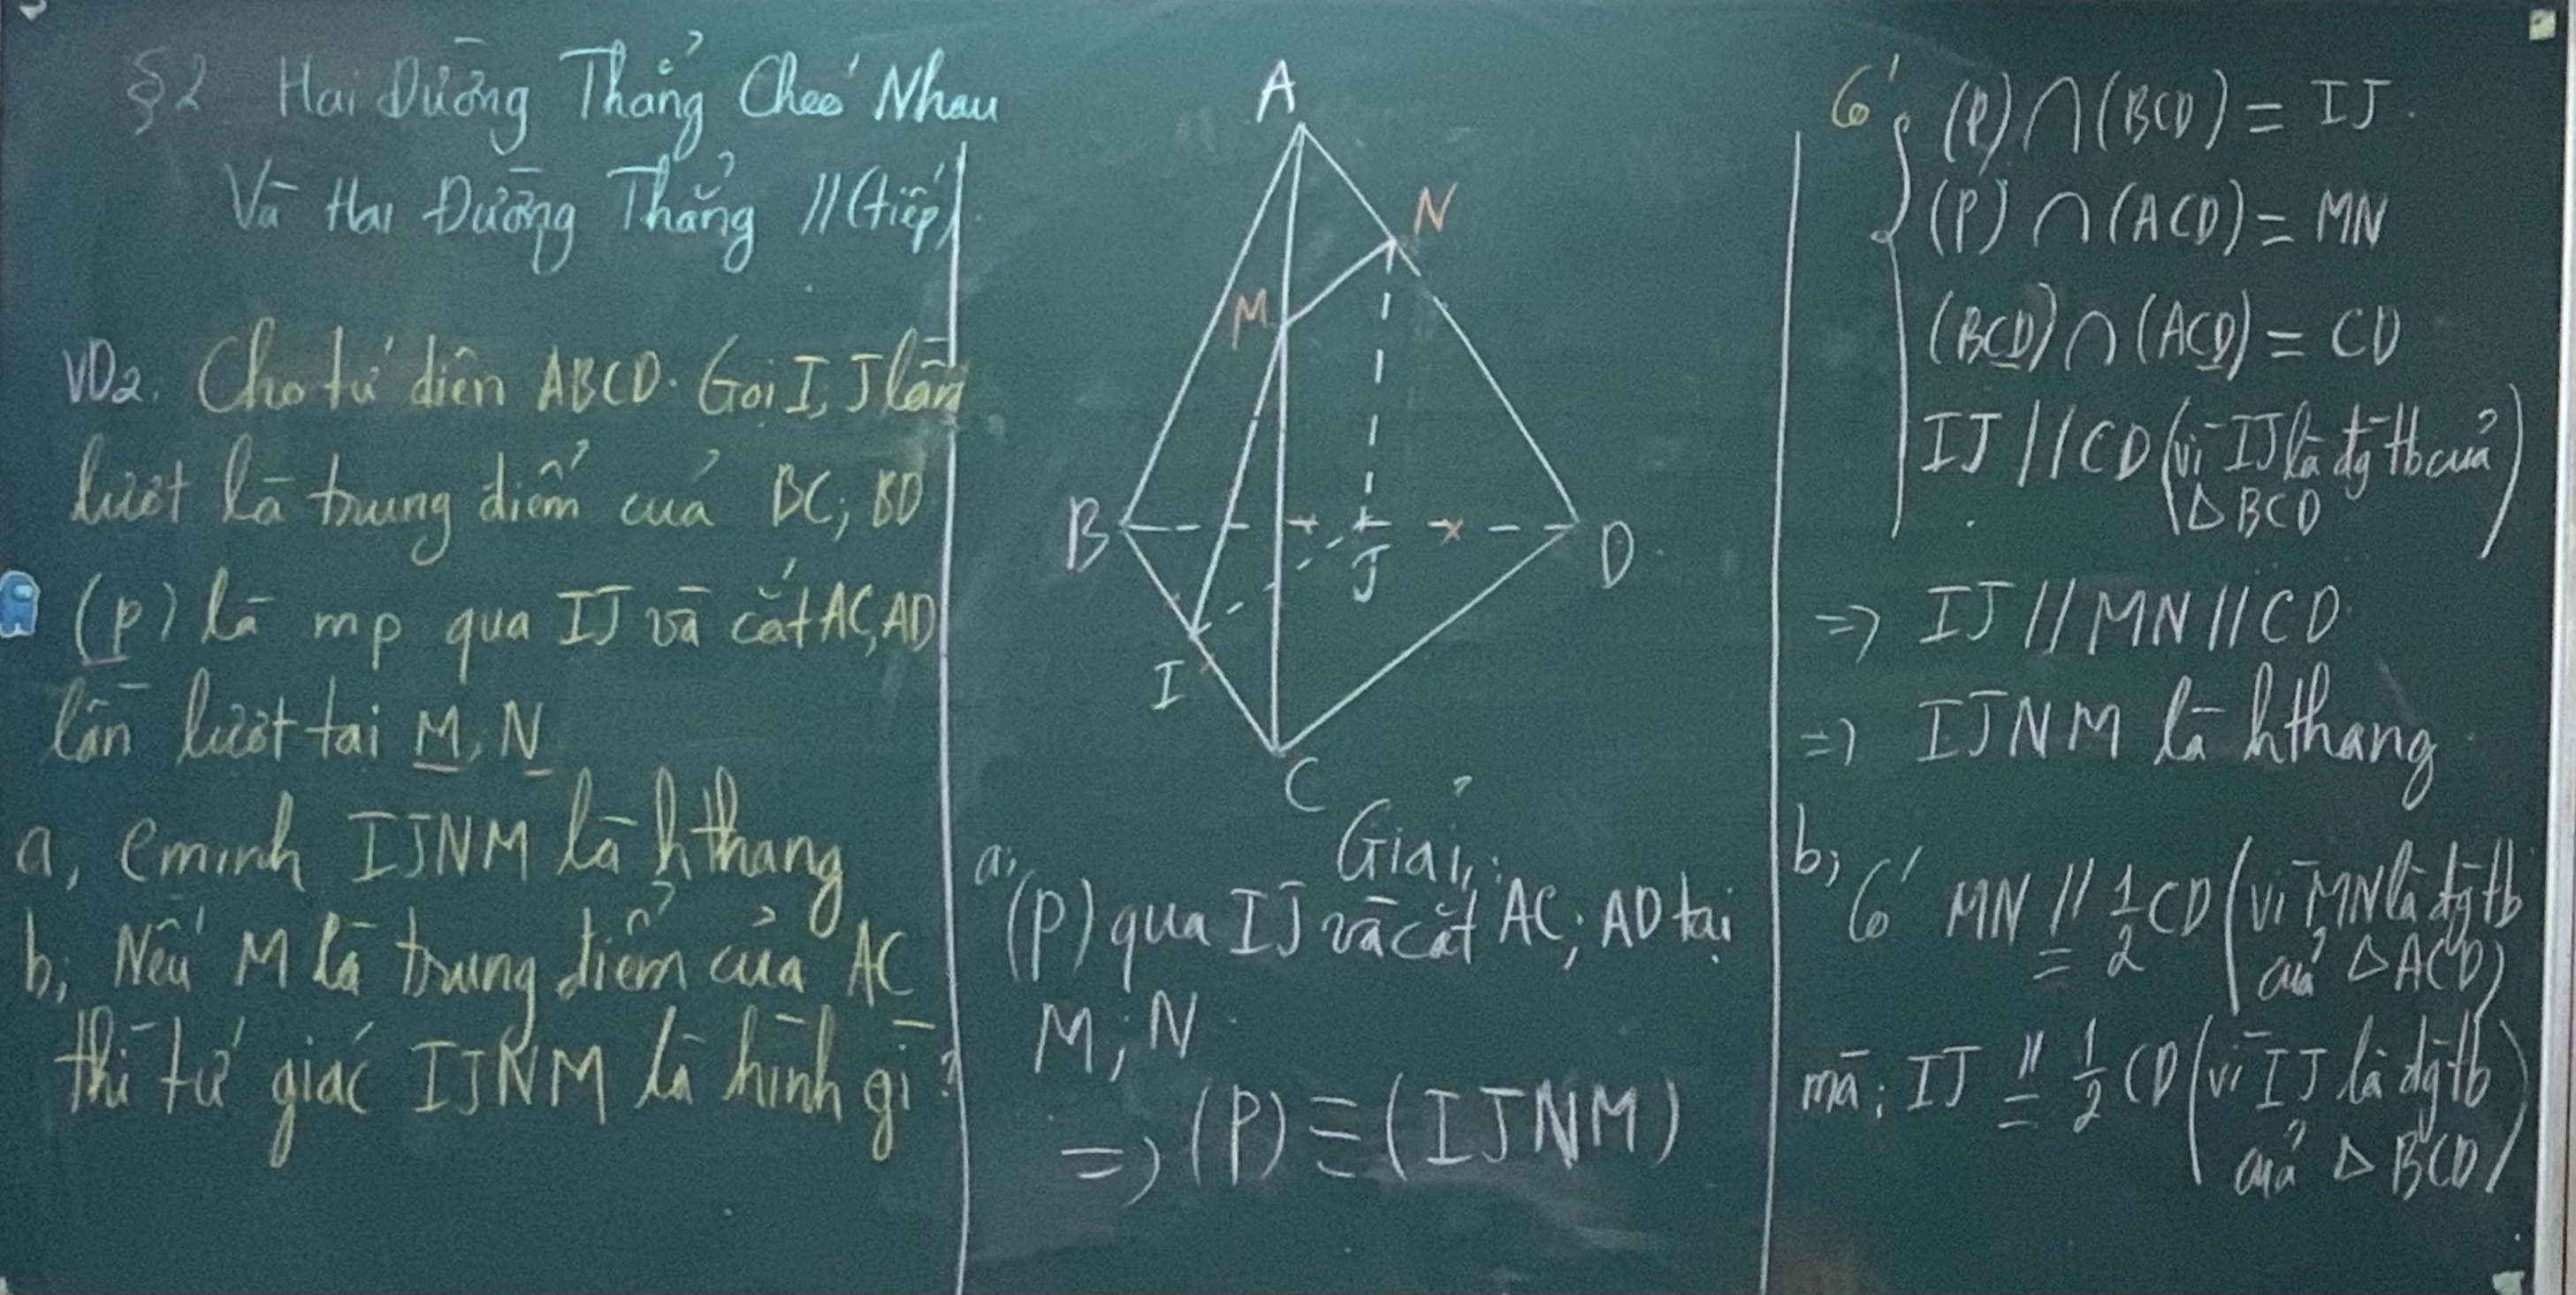 §2 Hai Đường Thẳng Chéo Nhau
Và Hai Đường Thẳng // (tiếp).
VD2. Cho tứ diện ABCD. Gọi I, J lần
lượt là trung điểm của BC; BD
(P) là mp qua IJ và cắt AC, AD
lần lượt tại M, N
a, cminh IJNM là hthang
b, Nếu M là trung điểm của AC
thì tứ giác IJNM là hình gì?
A
N
M
B
J
D
I
C
Giải:
a, (P) qua IJ và cắt AC; AD tại
M; N
=> (P) ≡ (IJNM)
Có (P) ∩ (BCD) = IJ.
(P) ∩ (ACD) = MN
(BCD) ∩ (ACD) = CD
IJ // CD (vì IJ là đg tb của
Δ BCD)
=> IJ // MN // CD
=> IJNM là hthang
b, Có MN // = 1/2 CD (vì MN là đg tb
của Δ ACD)
mà: IJ // = 1/2 CD (vì IJ là đg tb
của Δ BCD)